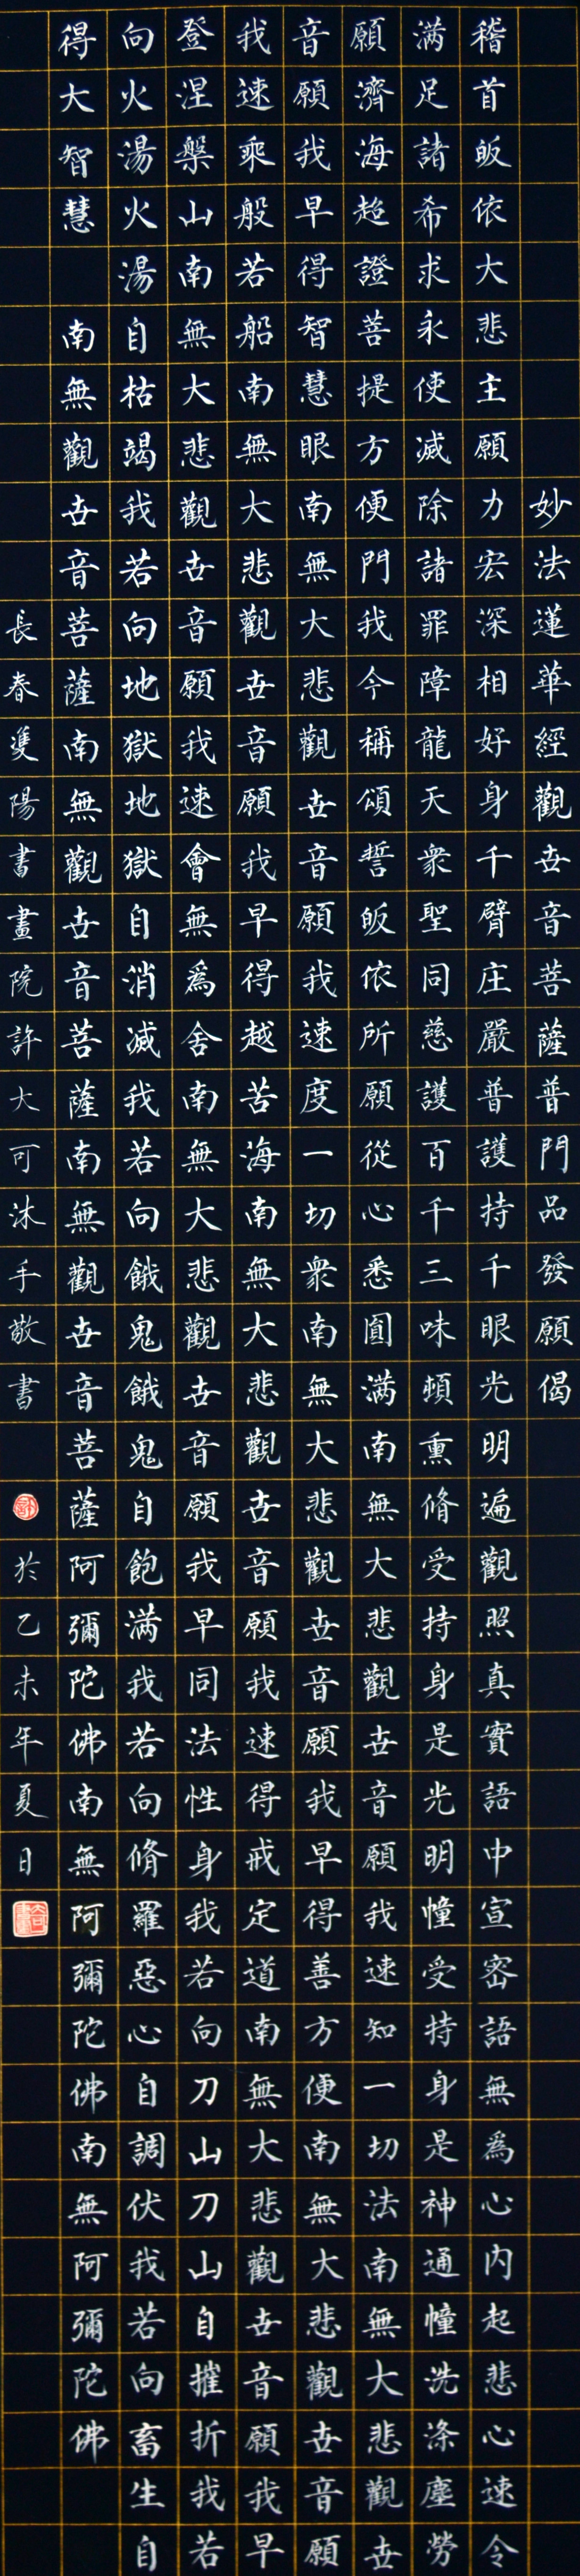 妙法蓮華經觀世音菩薩普門品發願偈
稽首皈依大悲主願力宏深相好身千臂庄嚴普護持千眼光明遍觀照真實語中宣密語無爲心内起悲心速令
满足諸希求永使滅除諸罪障龍天衆聖同慈護百千三味頓熏脩受持身是光明幢受持身是神通幢洗涤塵勞
願濟海超證菩提方便門我今稱頌誓皈依所願從心悉圓满南無大悲觀世音願我速知一切法南無大悲觀世
音願我早得智慧眼南無大悲觀世音願我速度一切衆南無大悲觀世音願我早得善方便南無大悲觀世音願
我速乘般若船南無大悲觀世音願我早得越苦海南無大悲觀世音願我速得戒定道南無大悲觀世音願我早
登涅槃山南無大悲觀世音願我速會無爲舍南無大悲觀世音願我早同法性身我若向刀山刀山自摧折我若
向火湯火湯自枯竭我若向地獄地獄自消滅我若向餓鬼餓鬼自飽满我若向脩羅惡心自調伏我若向畜生自
得大智慧 南無觀世音菩薩南無觀世音菩薩南無觀世音菩薩阿彌陀佛南無阿彌陀佛南無阿彌陀佛
長春隻陽書畫院許大可沐手敬書 於乙未年夏日